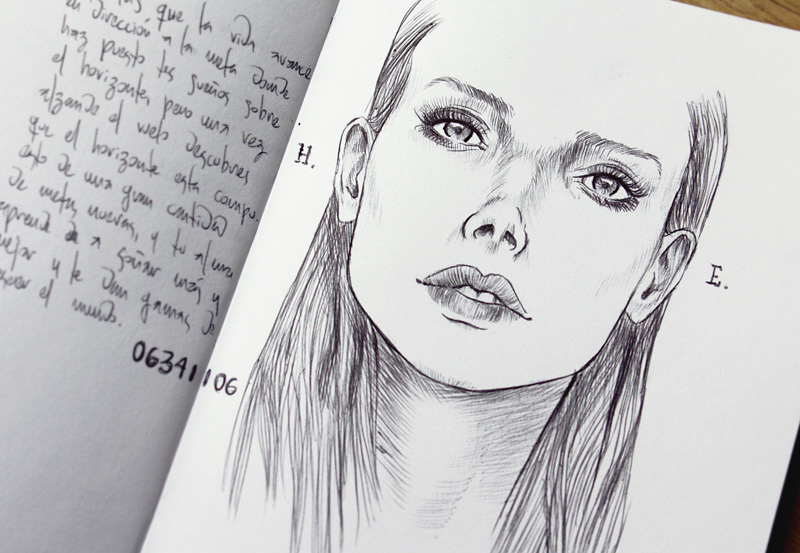 que la vida avance
en dirección a la meta donde
haz puesto tus sueños sobre
el horizonte, pero una vez
alzando el vuelo descubres
que el horizonte esta compu-
esto de una gran cantidad
de metas nuevas, y tu alma
aprende a soñar más y
mejor y te dan ganas de
el mundo.
06341106
H.
E.